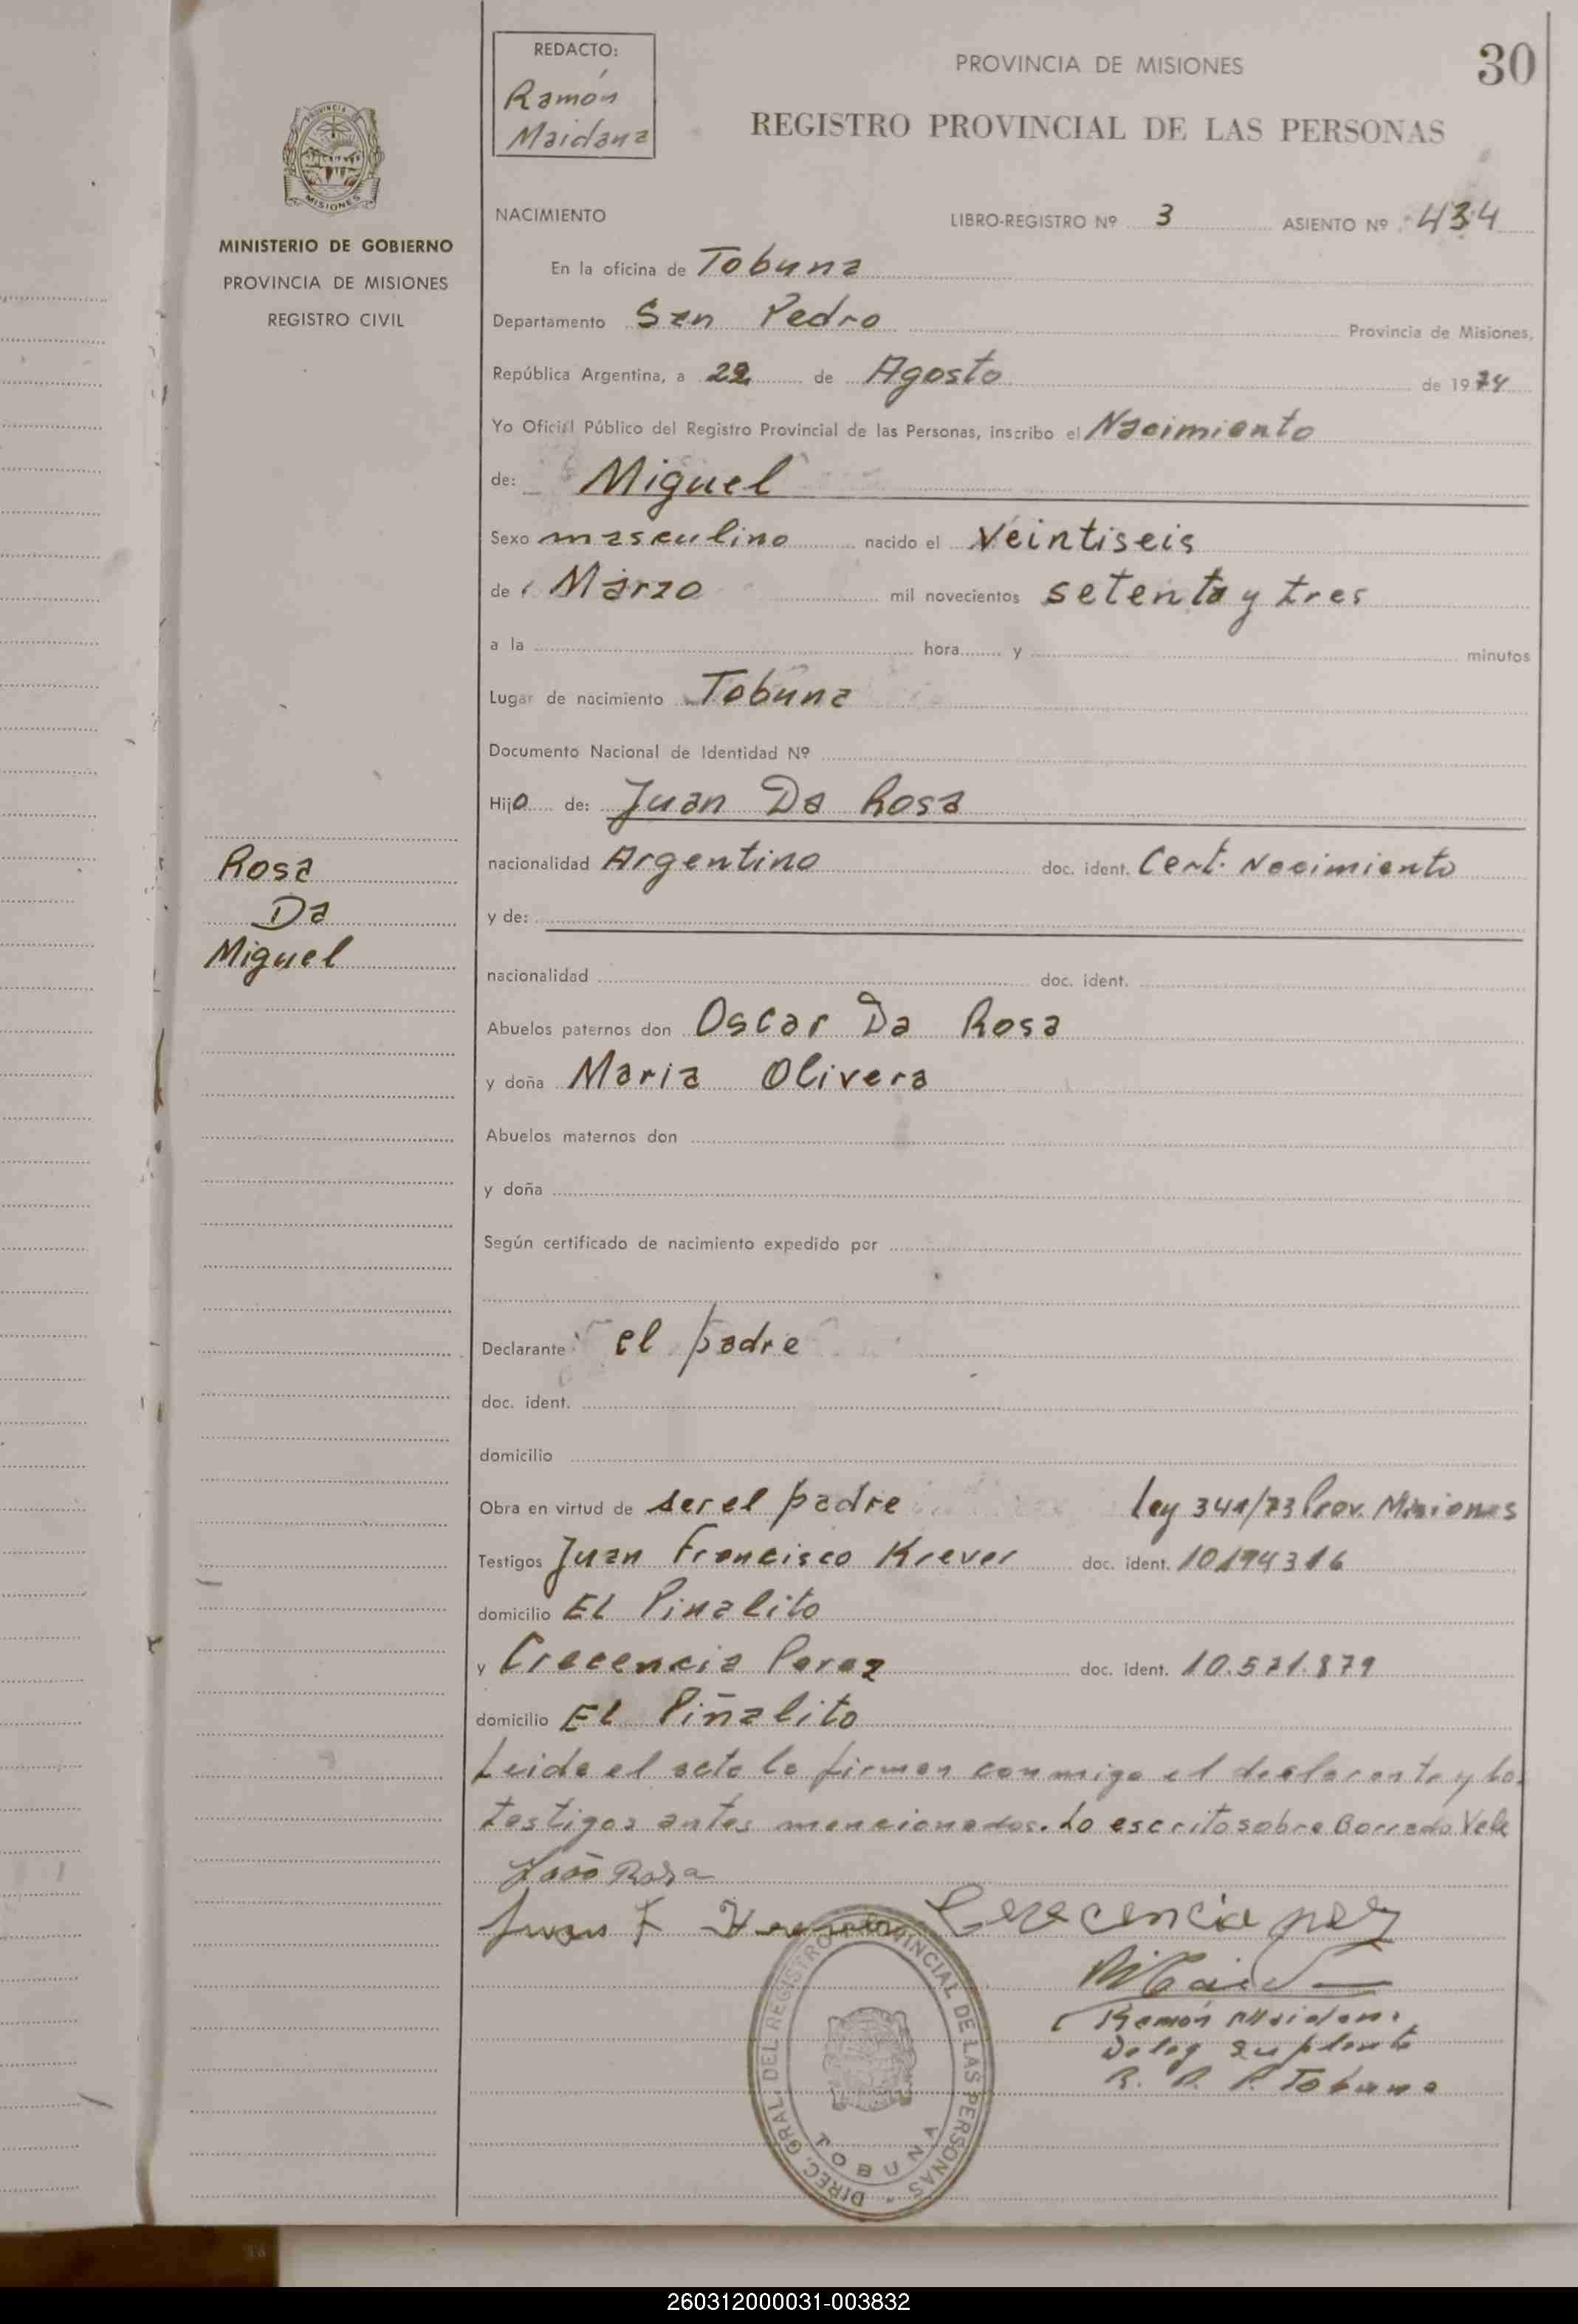 30
REDACTO:
Ramón
Maidana
PROVINCIA DE MISIONES
REGISTRO PROVINCIAL DE LAS PERSONAS
PROVINCIA DE
MISIONES
MINISTERIO DE GOBIERNO
PROVINCIA DE MISIONES
REGISTRO CIVIL
NACIMIENTO LIBRO-REGISTRO Nº 3 ASIENTO Nº 434
En la oficina de Tobuna
Departamento San Pedro Provincia de Misiones,
República Argentina, a 22 de Agosto de 1974
Yo Oficial Público del Registro Provincial de las Personas, inscribo el Nacimiento
de: Miguel
Sexo masculino nacido el veintiseis
de Marzo mil novecientos setenta y tres
a la hora y minutos
Lugar de nacimiento Tobuna
Documento Nacional de Identidad Nº
Hijo de: Juan Da Rosa
nacionalidad Argentino doc. ident. Cert. Nacimiento
y de:
Rosa
Da
Miguel
nacionalidad doc. ident.
Abuelos paternos don Oscar Da Rosa
y doña Maria Olivera
Abuelos maternos don
y doña
Según certificado de nacimiento expedido por
Declarante el padre
doc. ident.
domicilio
Obra en virtud de ser el padre ley 341/73 Prov. Misiones
Testigos Juan Francisco Krever doc. ident. 10194316
domicilio El Pinalito
y Crecencia Perez doc. ident. 10.521.879
domicilio El Piñalito
Leida el acta la firman conmigo el declarante y los
testigos antes mencionados. Lo escrito sobre Borrado Vale
João Rosa
Juan F
Cerecencia
Ramón Maidana
Deleg Suplente
R. P. P. Tobuna
DIREC. GRAL. DEL REGISTRO PROVINCIAL DE LAS PERSONAS
TOBUNA
260312000031-003832